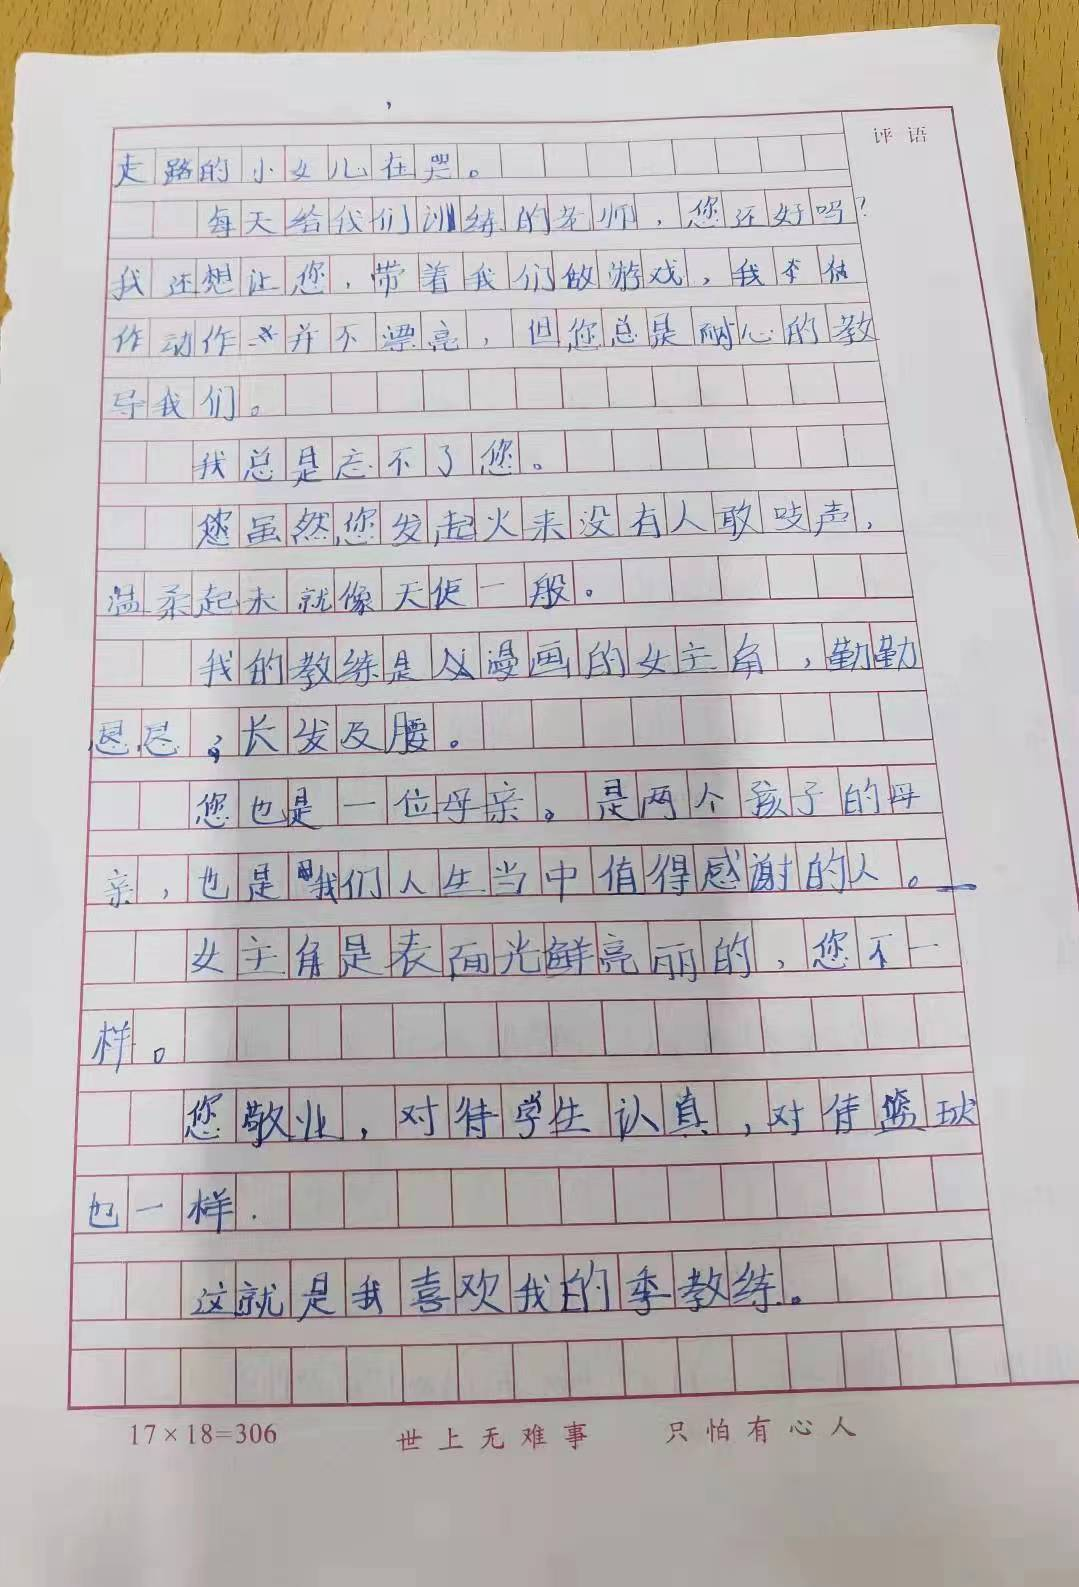 评语
走路的小女儿在哭。
每天给我们训练的老师，您还好吗？
我还想让您，带着我们做游戏，我本
作动作并不漂亮，但您总是耐心的教
导我们。
我总是忘不了您。
您虽然您发起火来没有人敢吱声，
温柔起来就像天使一般。
我的教练是漫画的女主角，勤勤
恳恳，长发及腰。
您也是一位母亲。是两个孩子的母
亲，也是我们人生当中值得感谢的人。
女主角是表面光鲜亮丽的，您不一
样。
您敬业，对待学生认真，对待篮球
也一样.
这就是我喜欢我的季教练。
17×18=306 世上无难事 只怕有心人